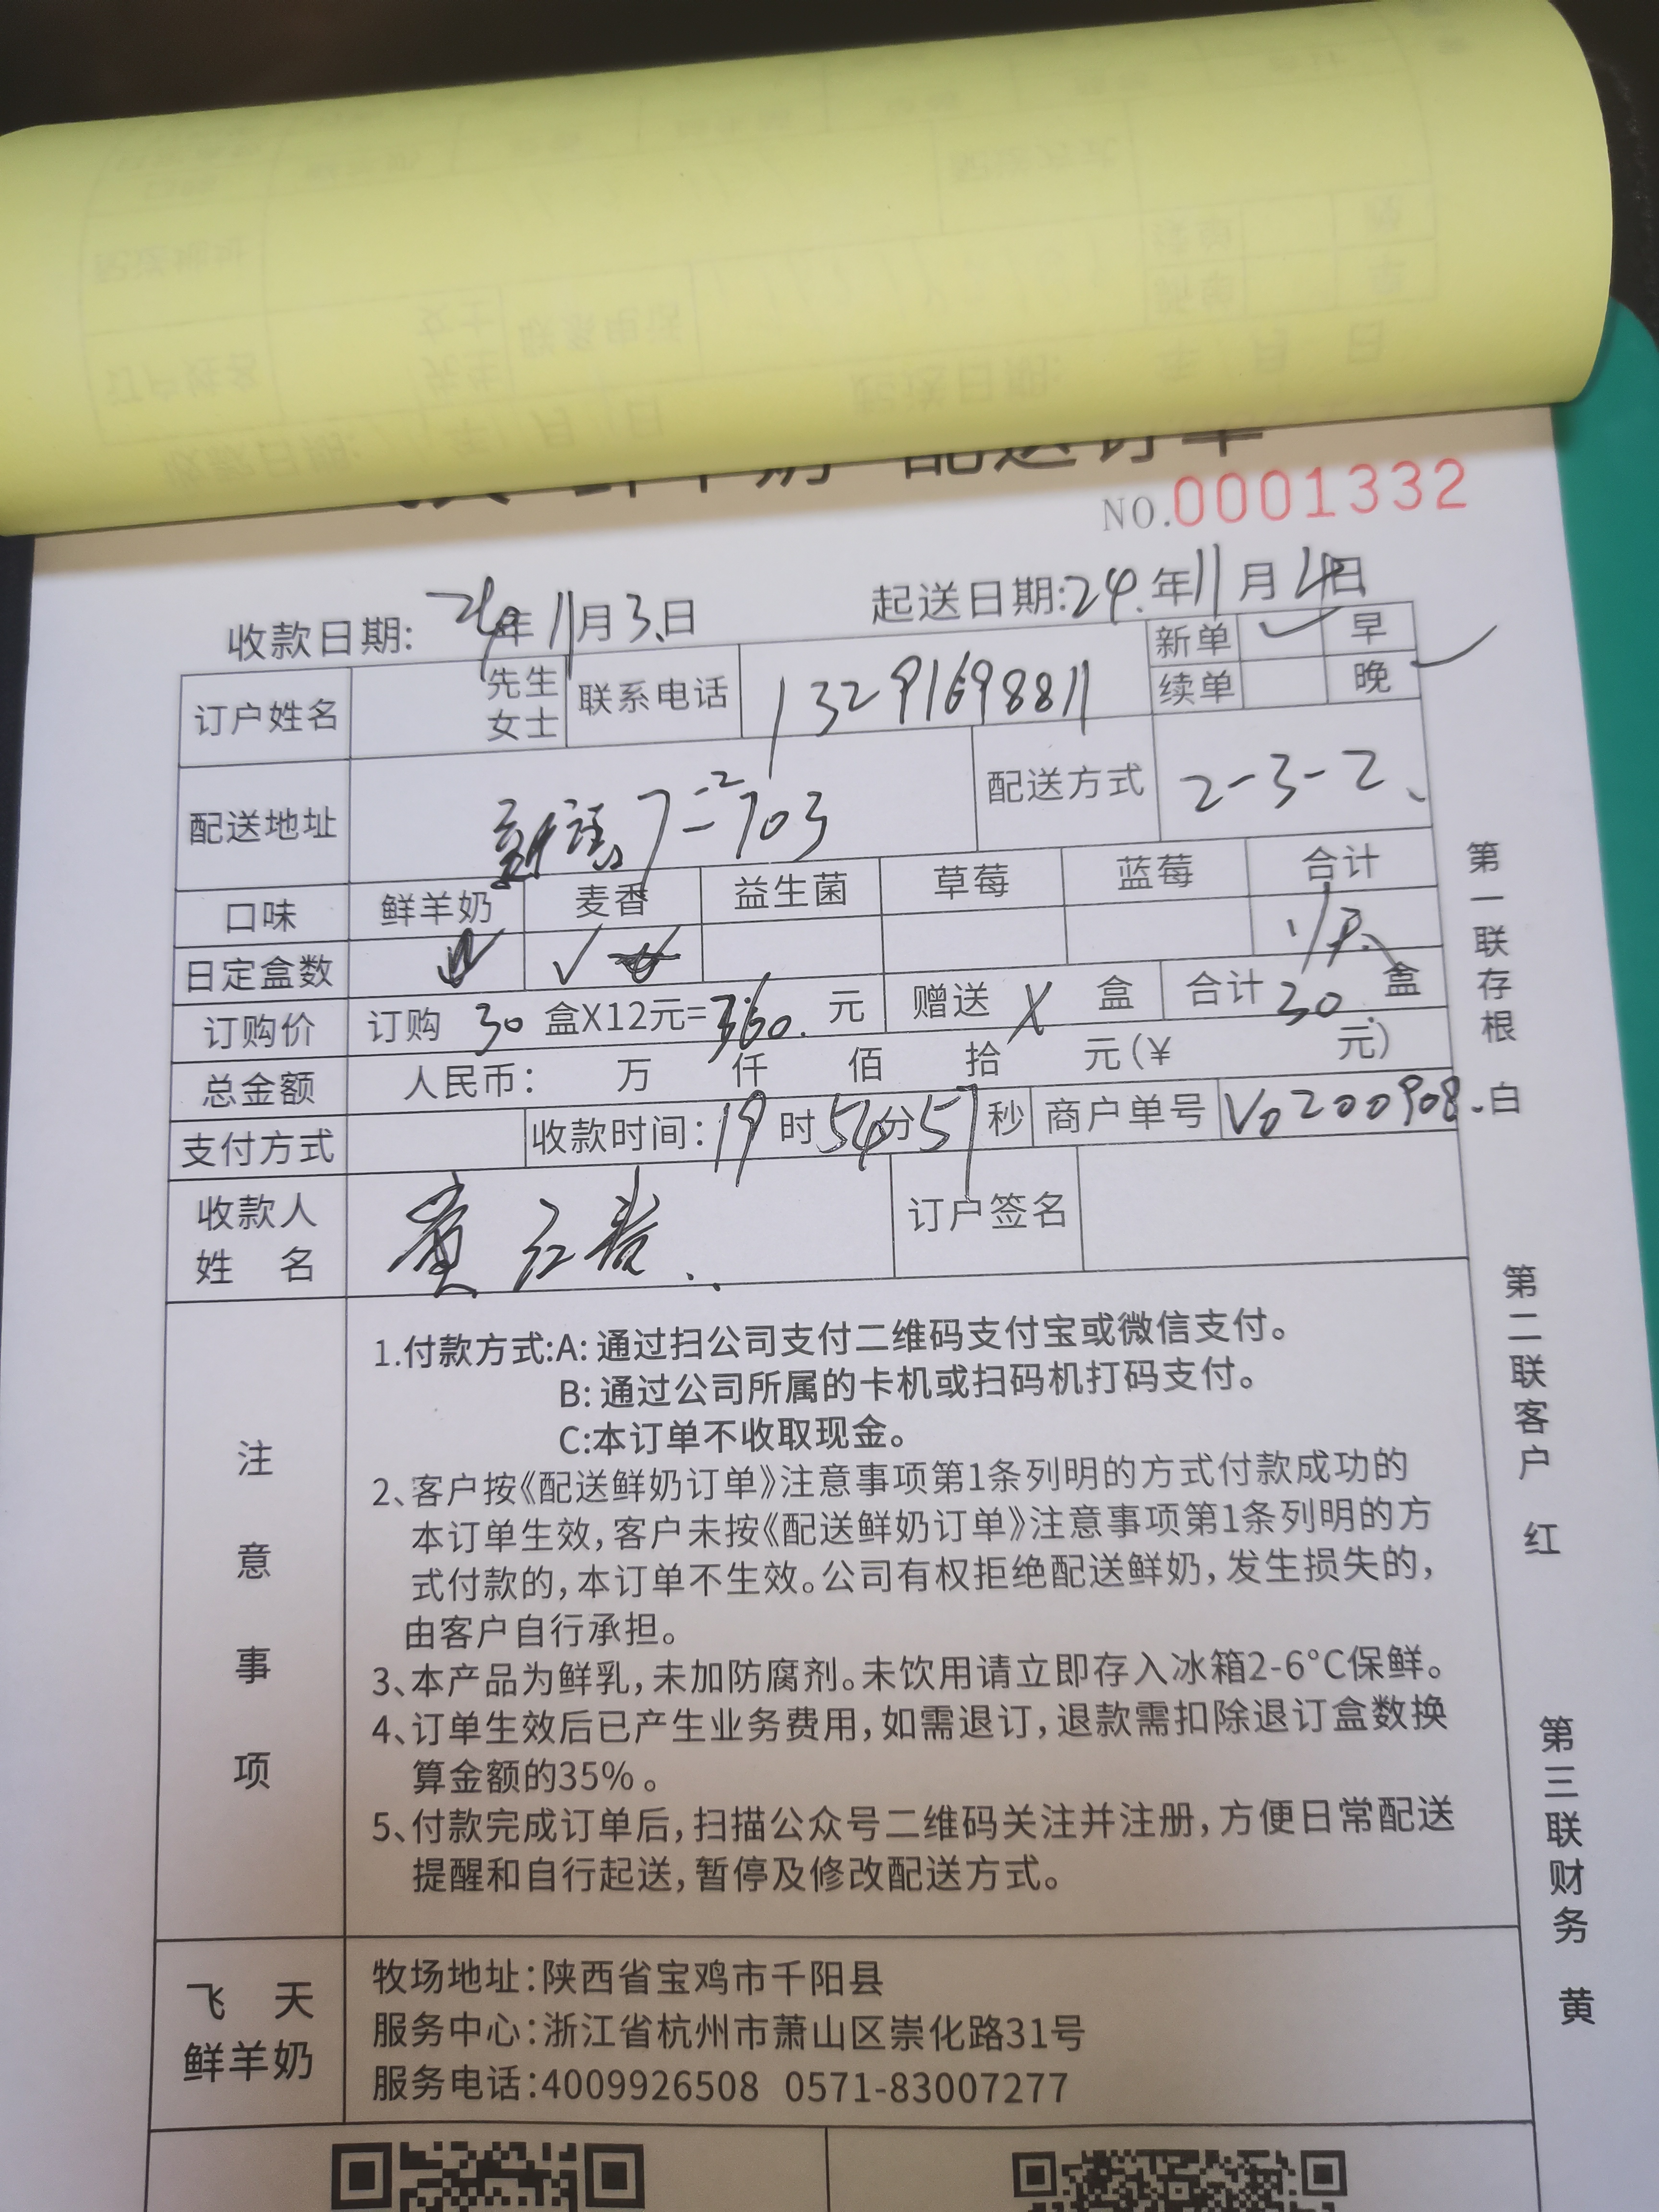 配送订单
NO.0001332
收款日期: 24年11月3日 起送日期:24年11月4日
订户姓名 先生 女士 联系电话 13291698811 新单 ✓ 早
续单 晚 ✓
配送地址 7-2-703 配送方式 2-3-2
口味 鲜羊奶 麦香 益生菌 草莓 蓝莓 合计
日定盒数 ✓ 1/天
订购价 订购 30 盒X12元=360元 赠送 X 盒 合计 30 盒
总金额 人民币: 万 仟 佰 拾 元(¥ 元)
支付方式 收款时间:19时54分57秒 商户单号 V0200908
收款人姓名 黄红 订户签名
注意事项
1.付款方式:A:通过扫公司支付二维码支付宝或微信支付。
B:通过公司所属的卡机或扫码机打码支付。
C:本订单不收取现金。
2、客户按《配送鲜奶订单》注意事项第1条列明的方式付款成功的
本订单生效,客户未按《配送鲜奶订单》注意事项第1条列明的方
式付款的,本订单不生效。公司有权拒绝配送鲜奶,发生损失的,
由客户自行承担。
3、本产品为鲜乳,未加防腐剂。未饮用请立即存入冰箱2-6°C保鲜。
4、订单生效后已产生业务费用,如需退订,退款需扣除退订盒数换
算金额的35%。
5、付款完成订单后,扫描公众号二维码关注并注册,方便日常配送
提醒和自行起送,暂停及修改配送方式。
飞天
鲜羊奶
牧场地址:陕西省宝鸡市千阳县
服务中心:浙江省杭州市萧山区崇化路31号
服务电话:4009926508 0571-83007277
第一联存根 白
第二联客户 红
第三联财务 黄